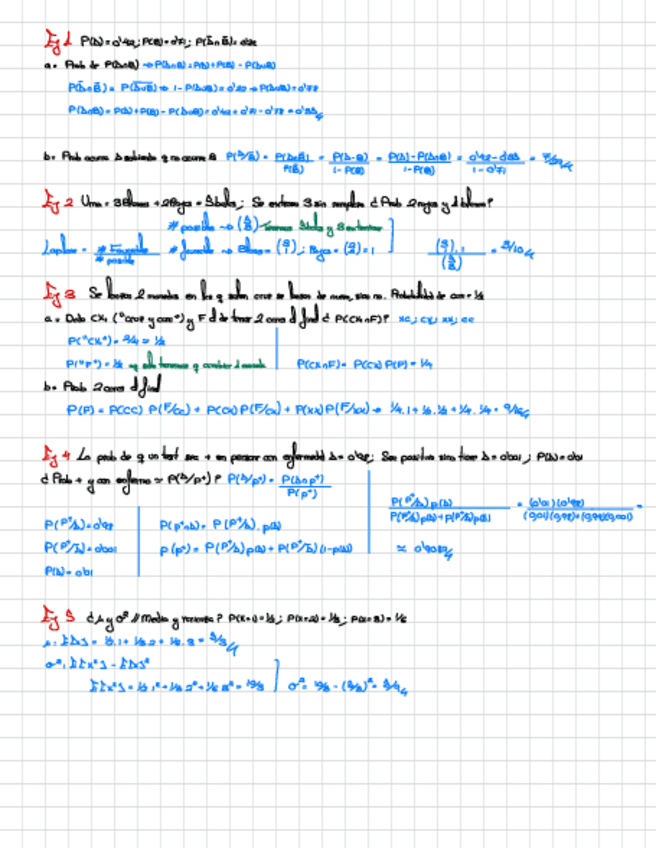 Ej 1 P(A)=0'42; P(B)=0'71; P(Ā∩B̄)=0'22
a. Prob de P(A∩B) → P(A∩B)=P(A)+P(B)-P(A∪B)
P(Ā∩B̄) = P(A∪B) → 1-P(A∪B)=0'22 → P(A∪B)=0'78
P(A∩B)=P(A)+P(B)-P(A∪B)=0'42+0'71-0'78=0'35
b. Prob ocurra A sabiendo q no ocurre B P(A/B̄) = P(A∩B̄)/P(B̄) = P(A-B)/1-P(B) = P(A)-P(A∩B)/1-P(B) = 0'42-0'35/1-0'71 = 7/29
Ej 2 Urna = 3Blancas + 2Rojas = 5bolas; Se extraen 3 sin reemplazo ¿Prob 2 rojas y 1 blanca?
# posible → (5/3) Tenemos 5bolas y 3
Laplace = # Favorable / # posible # favorable → Blanca = (3/1); Rojas = (2/2)=1 (3/1).1 / (5/3) = 3/10
Ej 3 Se lanzan 2 monedas en las q salen cruz se lanzan de nuevo, sino no. Probabilidad de cara = 1/2
a. Dado CX, ("cruz y cara") y F d de tener 2 caras al final ¿P(CX∩F)? XC; CX; XX; CC
P("CX")= 2/4 = 1/2
P("F")= 1/2 P(CX∩F)= P(CX) P(F)= 1/4
b. Prob 2 caras al final
P(F) = P(CC) P(F/CC) + P(CX) P(F/CX) + P(XX) P(F/XX) → 1/4.1 + 1/2.1/2 + 1/4.1/4 = 9/16
Ej 4 La prob de q un test sea + en persona con enfermedad A = 0'98; Sea positivo sin tener A = 0'001; P(A)=0'01
¿Prob + y con enfermo = P(A/p+)? P(A/p+) = P(A∩p+)/P(p+)
P(P+/A)p(A) / P(P+/A)p(A)+P(P+/Ā)p(Ā) = (0'01)(0'98) / (0,01)(0,98)+(0,99)(0,001) =
P(P+/A)=0'98 P(p+∩A)= P(P+/A).p(A)
P(P+/Ā)=0'001 p(p+)= P(P+/A)p(A) + P(P+/Ā)(1-p(A)) ≈ 0'9082
P(A)=0'01
Ej 5 ¿μ y σ² // Media y varianza? P(x=1)=1/2; P(x=2)=1/3; P(x=3)=1/6
μ: E[x] = 1/2.1+1/3.2+1/6.3 = 5/3
σ²: E[x²] - E[x]²
E[x²] = 1/2.1²+1/3.2²+1/6.3² = 10/3 σ² = 10/3 - (5/3)² = 5/9